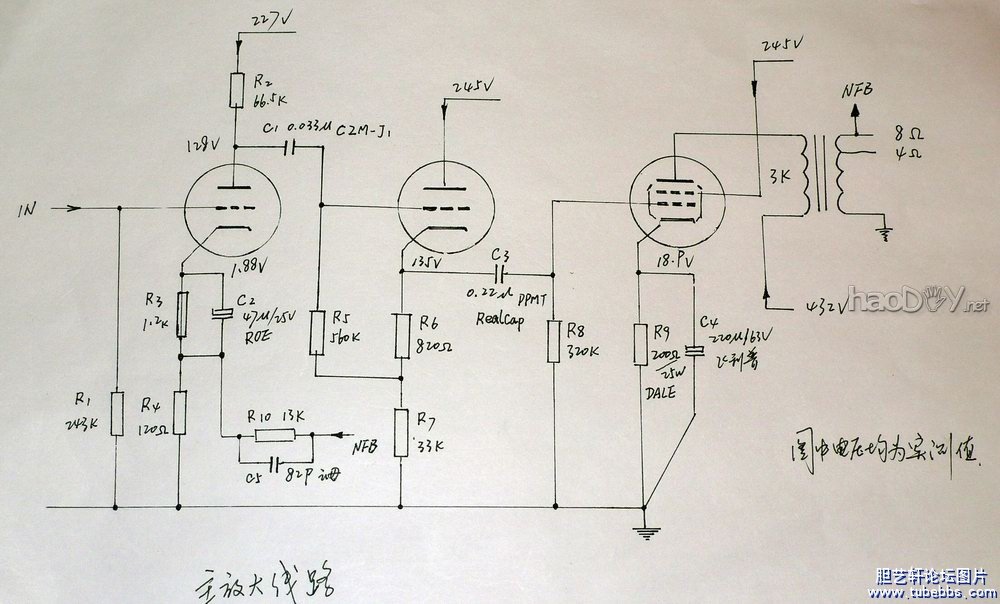 227V
R2
66.5K
C1 0.033μ CZM-J1
128V
IN
1.88V
R3
1.2K
C2
47μ/25V
ROE
R1
243K
R4
120Ω
R10 13K
NFB
C5 82P
245V
135V
R5
560K
R6
820Ω
R7
33K
C3
0.22μ DPMT
RealCap
R8
320K
245V
3K
NFB
8Ω
4Ω
432V
R9
200Ω
25W
DALE
C4
220μ/63V
飞利普
haoDIY.net
图中电压均为实测值
主放大线路
胆艺轩论坛图片
www.tubebbs.com